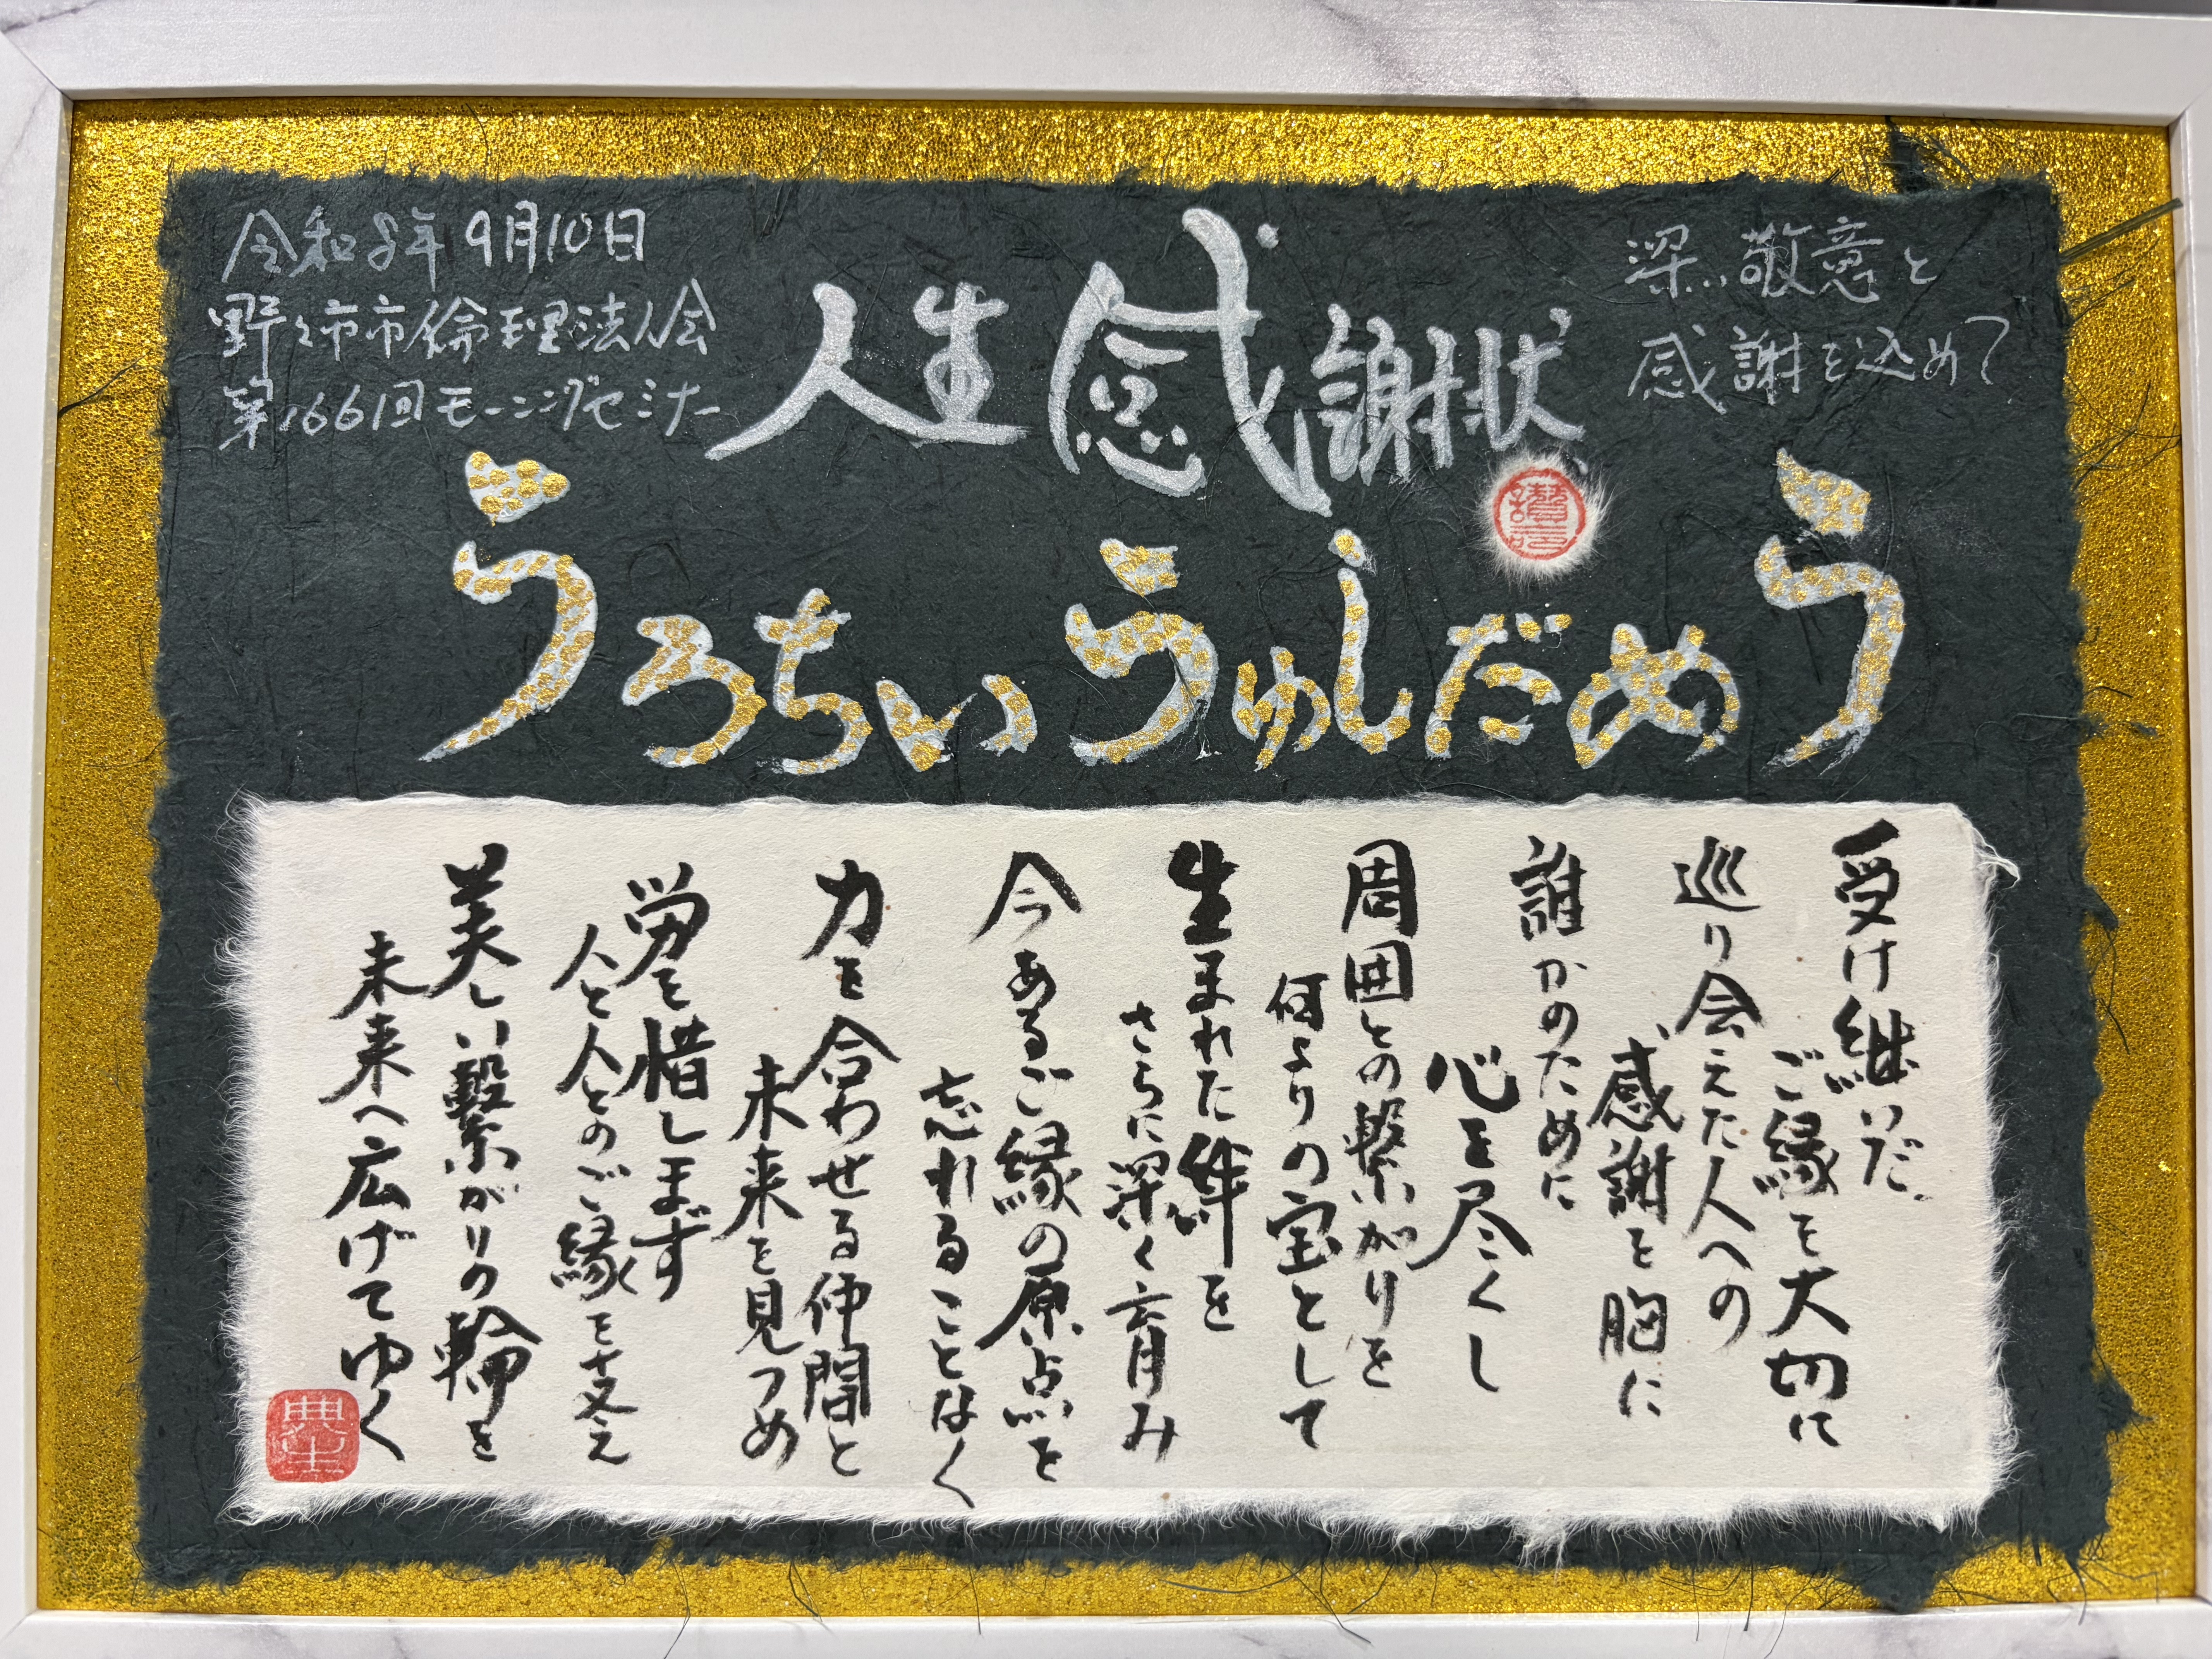 令和8年9月10日
野々市市倫理法人会
第1661回モーニングセミナー
人生感謝状
深い敬意と
感謝を込めて
うめだしゅういちろう
受け継いだ
ご縁を大切に
巡り会えた人への
感謝を胸に
誰かのために
心を尽くし
周囲との繋がりを
何よりの宝として
生まれた絆を
さらに深く育み
今あるご縁の原点を
忘れることなく
力を合わせる仲間と
未来を見つめ
労を惜しまず
人と人とのご縁を支え
美しい繋がりの輪を
未来へ広げてゆく
典生